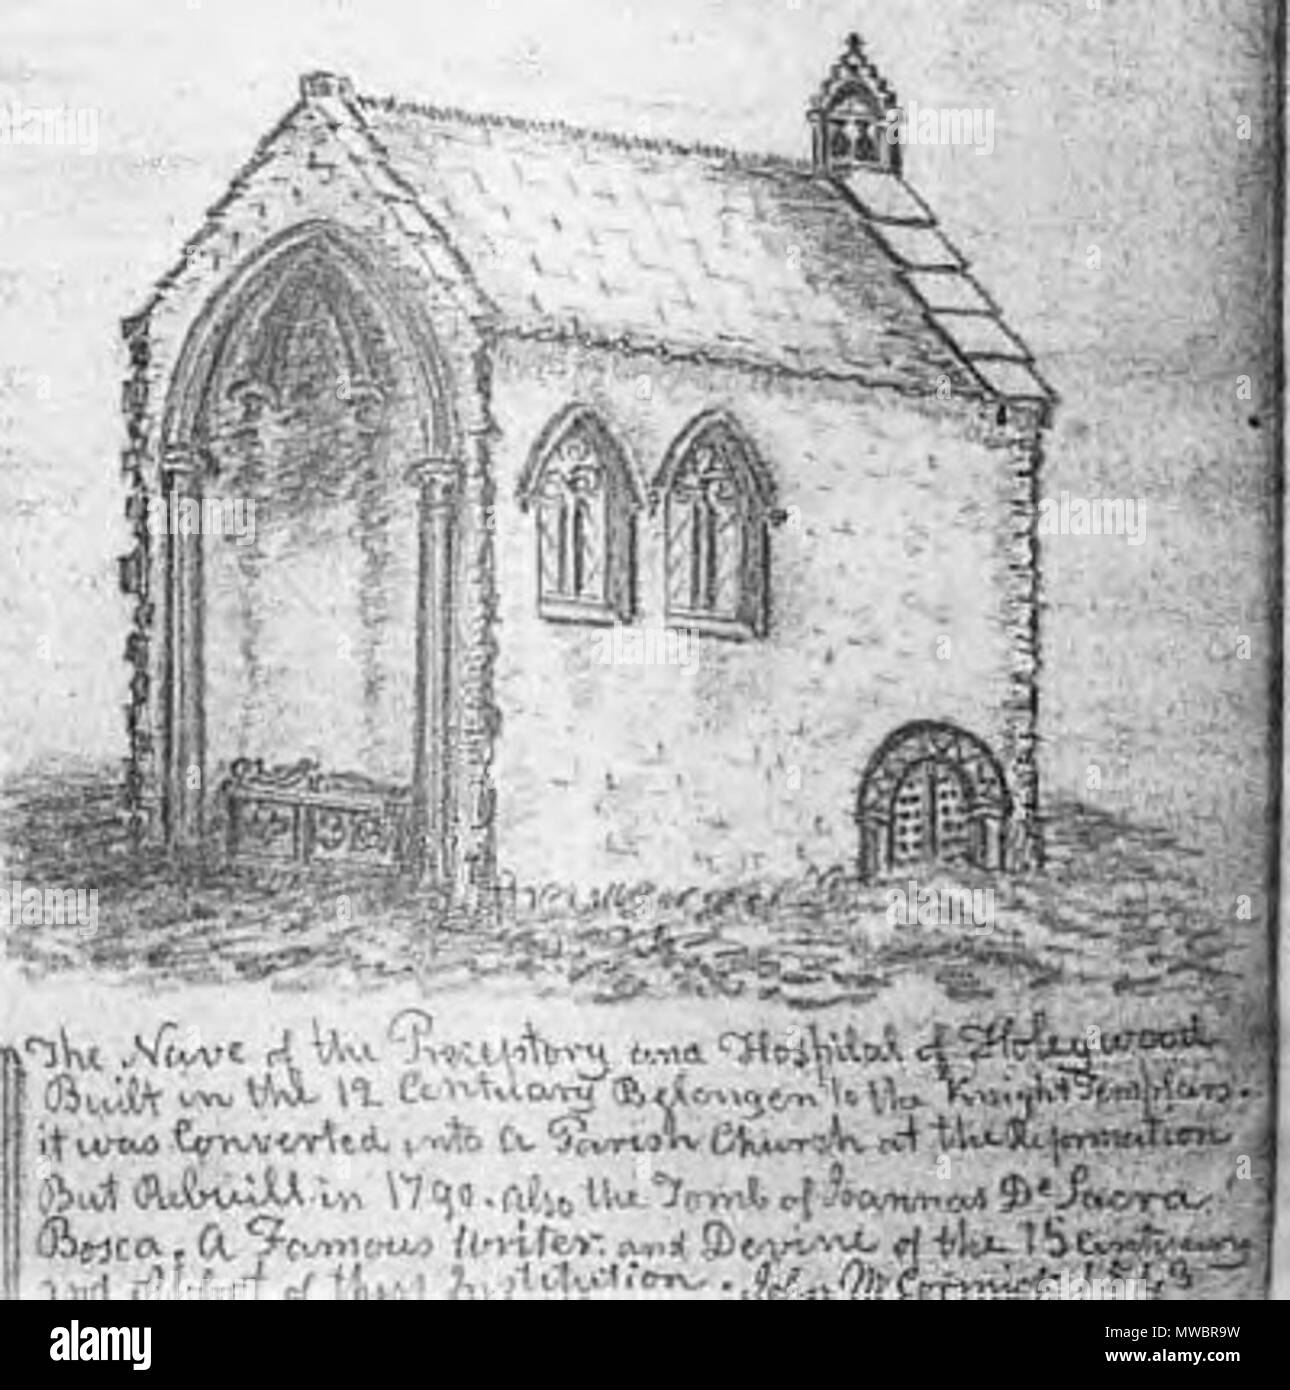 The Nave of the Preeptory and Hospital of Holeywood
Built in the 12 Centuary Belongen to the Knight Templars.
it was Converted into a Parish Church at the Reformation
But Rebuilt in 1790. also the Tomb of Ioannas De Sacra
Bosca. A Famous Writer. and Devine of the 15 Centuary
and of this Institution. John McCormick
alamy
Image ID: MWBR9W
www.alamy.com